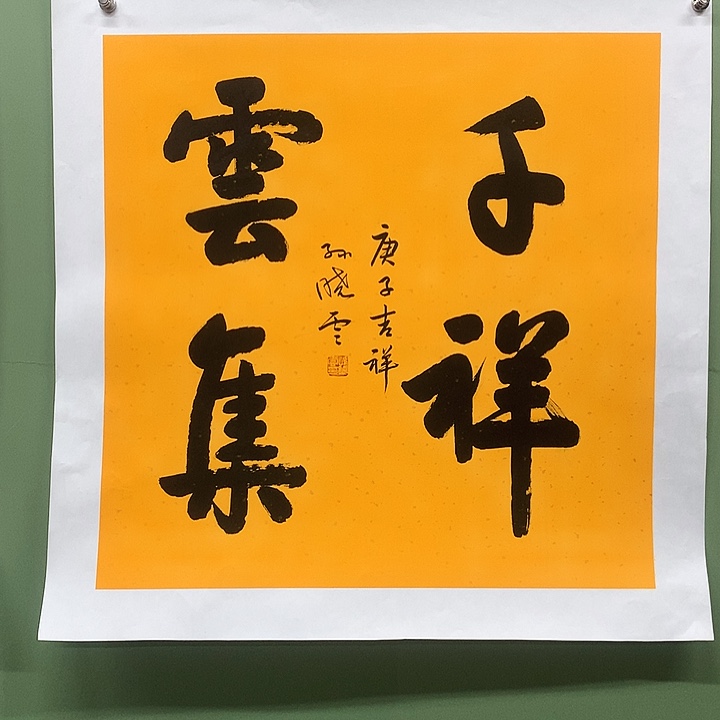 千祥
雲集
庚子吉祥
孙晓云